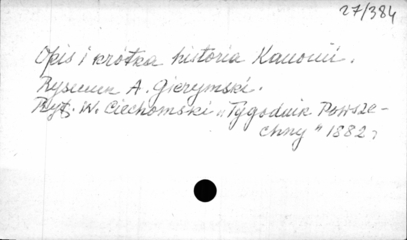 27/384
Opis i krótka historia Kanonii.
Rysunek A. Gierymski.
Ryt. W. Ciechomski „Tygodnik Powsze-
chny" 1882,